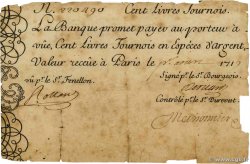 N. 220490 Cent Livres Tournois.
La Banque promet payer au porteur à
vüe, Cent Livres Tournois en Espèces d'argent,
Valeur reçeüe à Paris le 171
vû p.r le S.r Fenellon. Signé p.r le S.r Bourgeois.
Contrôlé p.r le S.r Durevest.